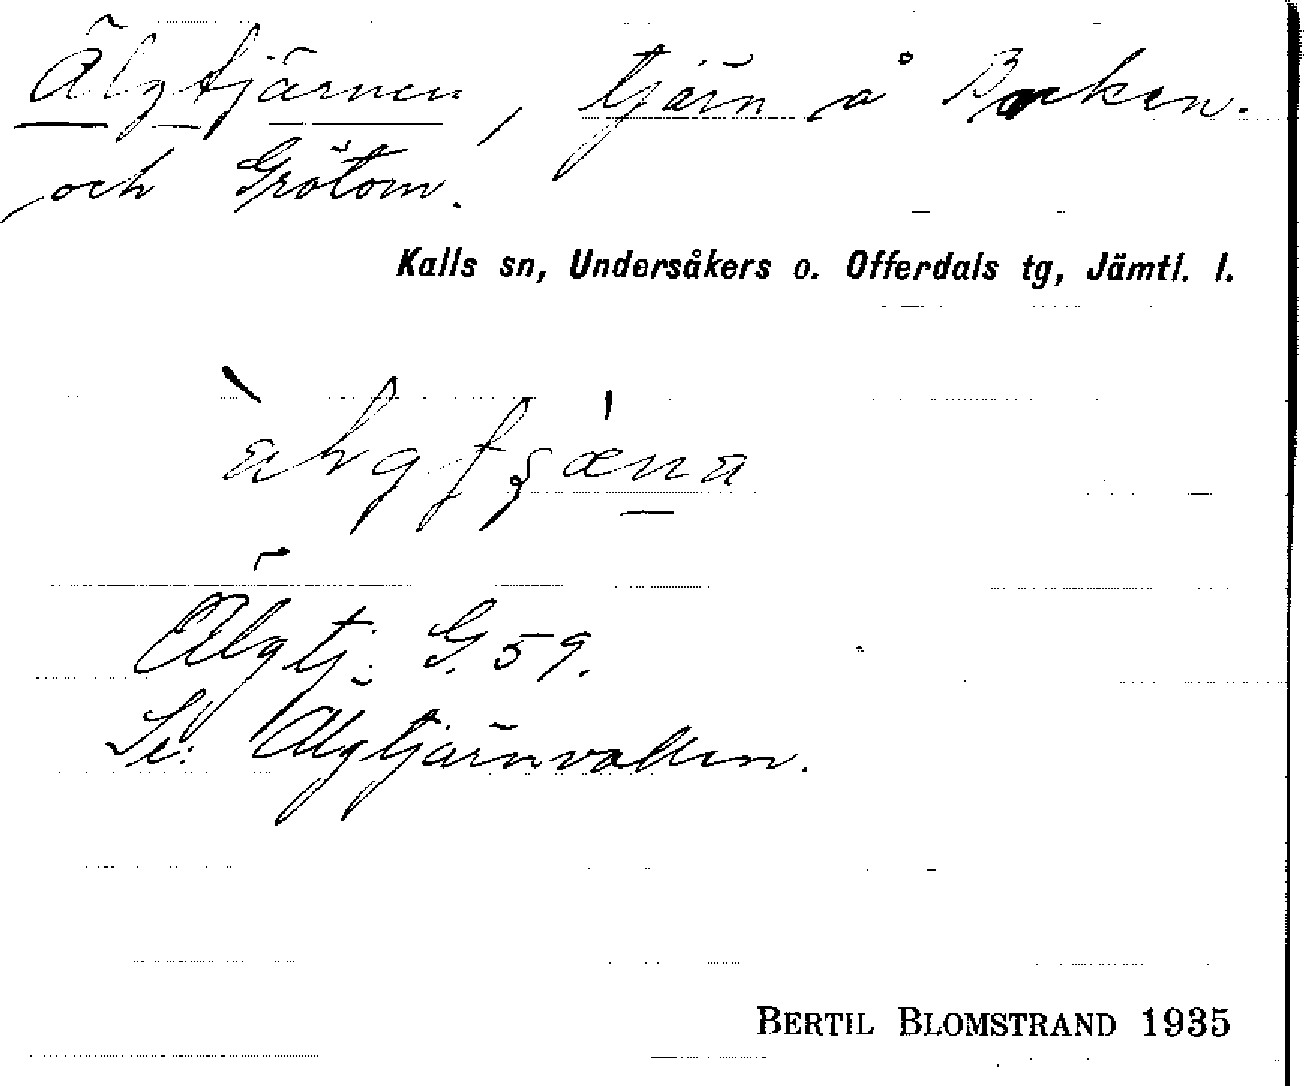 Älgtjärnen, tjärn å Backen.
och Grötom.
Kalls sn, Undersåkers o. Offerdals tg, Jämtl. l.
Älgtj. G. 59.
Se: Älgtjärnvallen.
BERTIL BLOMSTRAND 1935